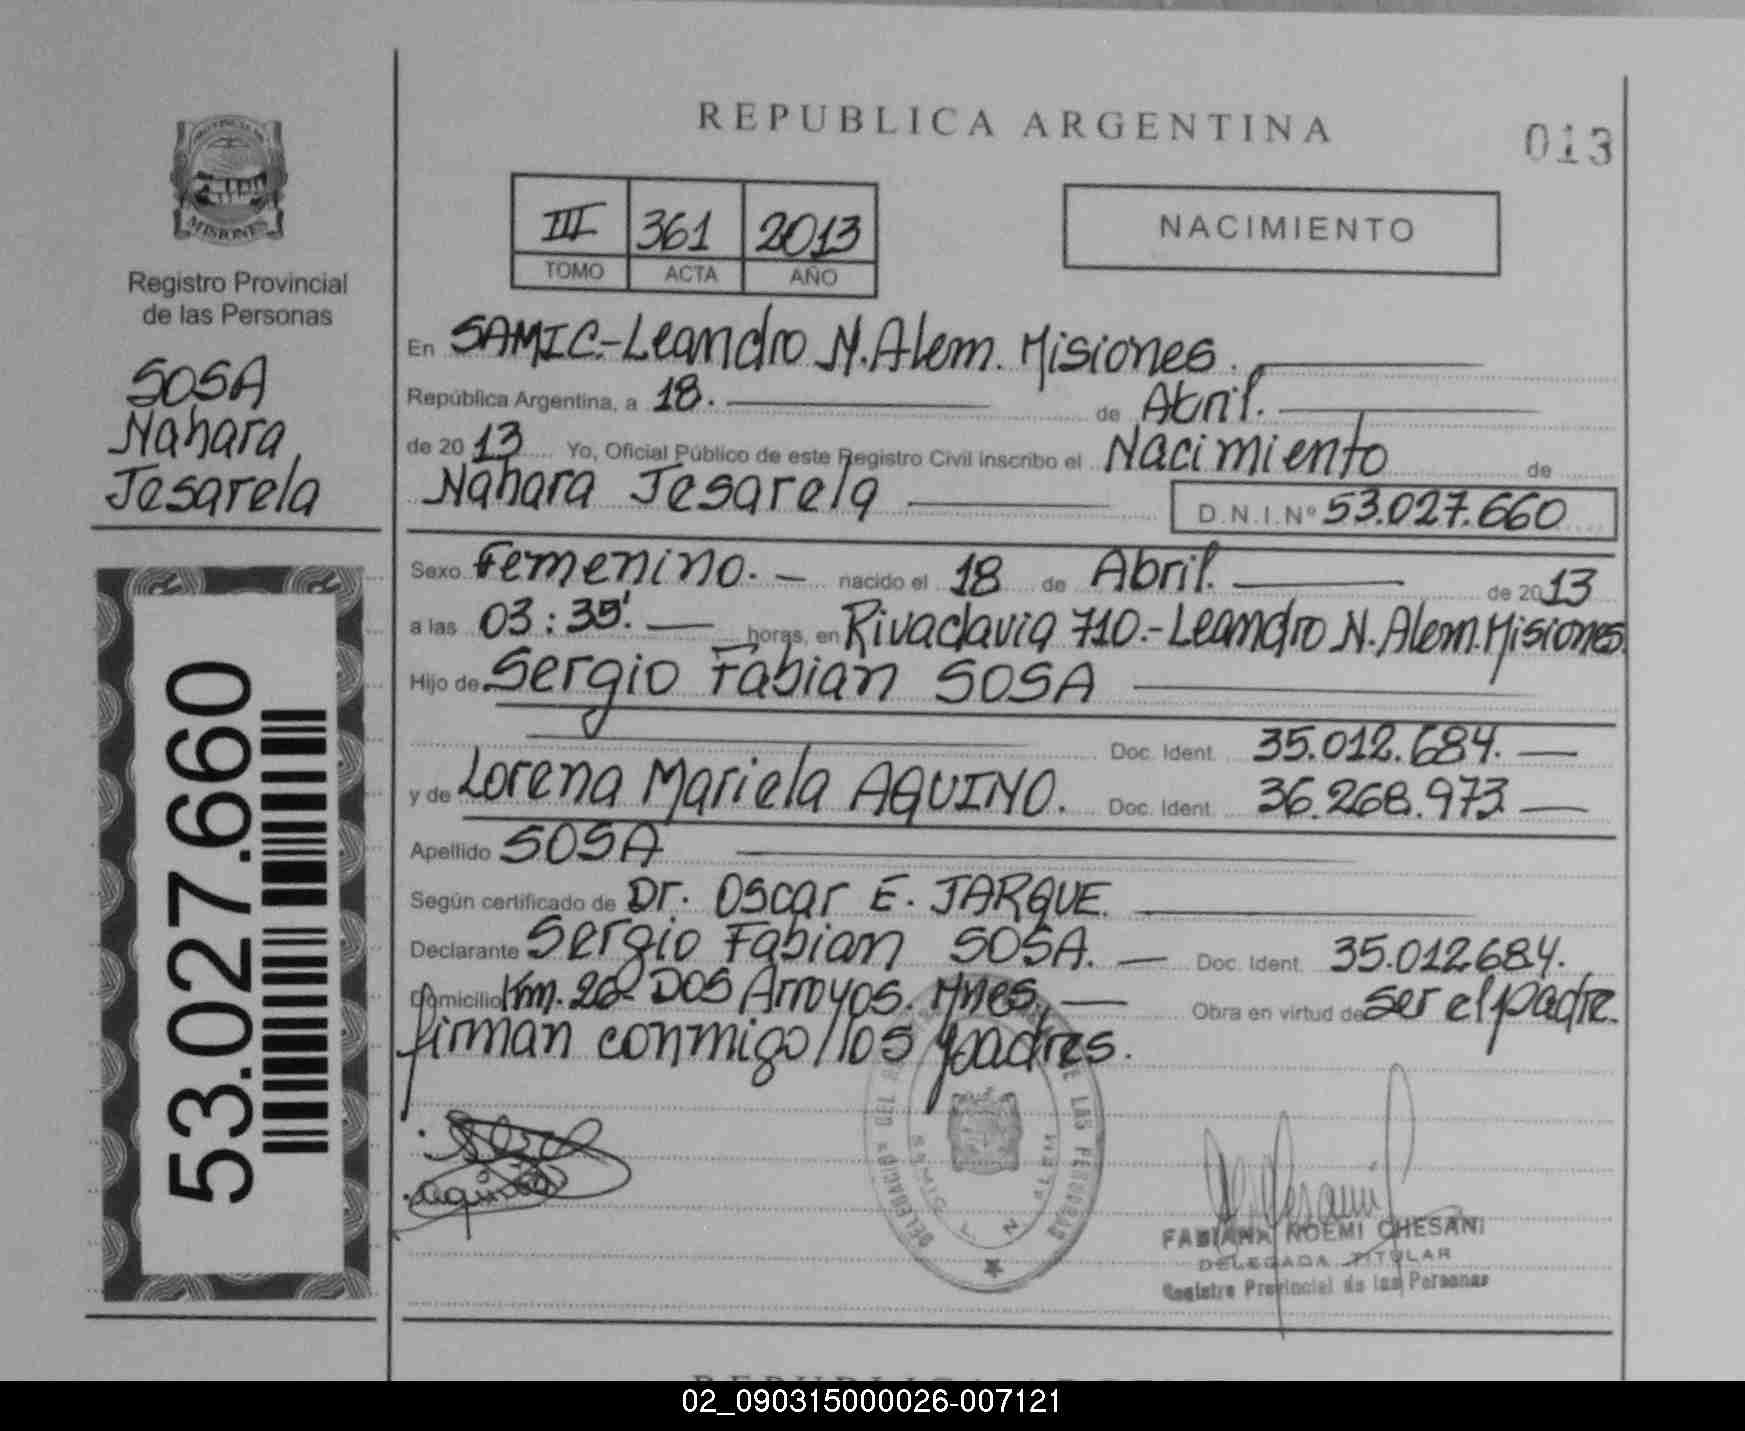 REPUBLICA ARGENTINA
013
PROVINCIA DE
MISIONES
Registro Provincial
de las Personas
SOSA
Nahara
Jesarela
53.027.660
III 361 2013
TOMO ACTA AÑO
NACIMIENTO
En SAMIC.-Leandro N. Alem. Misiones.
República Argentina, a 18. de Abril.
de 2013 Yo, Oficial Público de este Registro Civil inscribo el Nacimiento de
Nahara Jesarela D.N.I. Nº 53.027.660
Sexo Femenino. nacido el 18 de Abril. de 2013
a las 03:35'. horas, en Rivadavia 710.-Leandro N. Alem. Misiones
Hijo de Sergio Fabian SOSA
Doc. Ident. 35.012.684.
y de Lorena Mariela AQUINO. Doc. Ident. 36.268.973
Apellido SOSA
Según certificado de Dr. Oscar E. JARQUE.
Declarante Sergio Fabian SOSA. Doc. Ident. 35.012684.
Domicilio Km. 26- DOS Arroyos. Mnes. Obra en virtud de ser el padre.
firman conmigo los padres.
Aquino
DE LAS PERSONAS
DELEGACION
FABIANA NOEMI CHESANI
DELEGADA TITULAR
Registro Provincial de las Personas
02_090315000026-007121